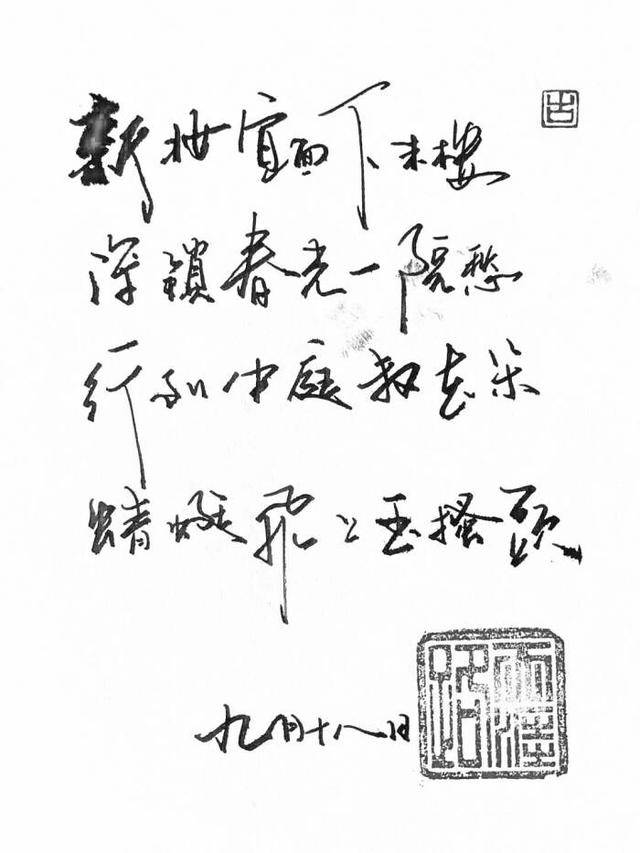 新妆宜面下朱楼
深锁春光一院愁
行到中庭数花朵
蜻蜓飞上玉搔头
九月十八日